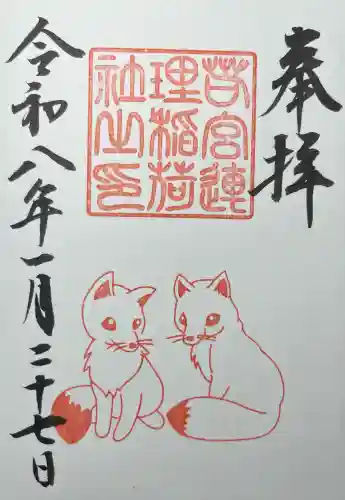 奉拝
苫宮連
理稲荷
社之印
令和八年一月二十七日